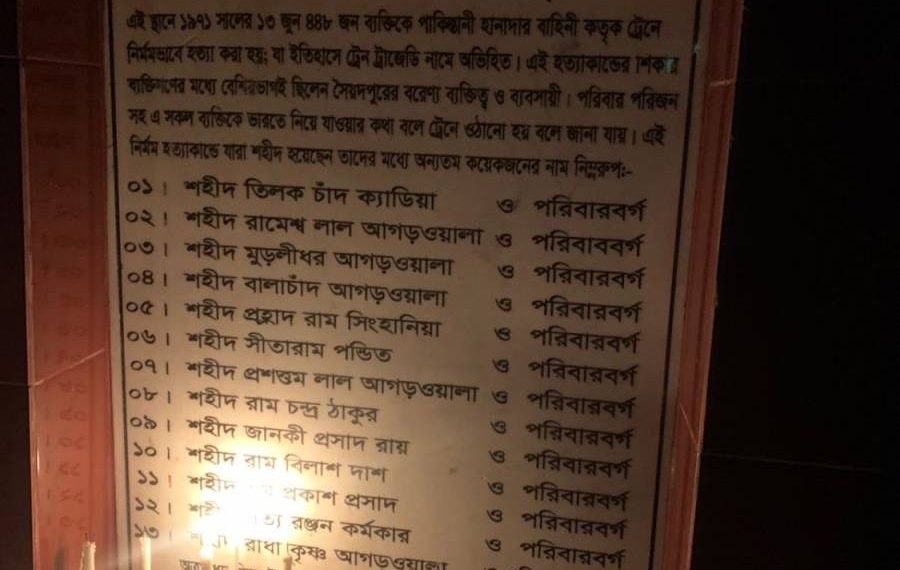 এই স্থানে ১৯৭১ সালের ১৩ জুন ৪৪৮ জন ব্যক্তিকে পাকিস্তানী হানাদার বাহিনী কতৃক ট্রেনে
নির্মমভাবে হত্যা করা হয়; যা ইতিহাসে ট্রেন ট্রাজেডি নামে অভিহিত। এই হত্যাকান্ডের শিকার
ব্যক্তিগণের মধ্যে বেশিরভাগই ছিলেন সৈয়দপুরের বরেণ্য ব্যক্তিত্ব ও ব্যবসায়ী। পরিবার পরিজন
সহ এ সকল ব্যক্তিকে ভারতে নিয়ে যাওয়ার কথা বলে ট্রেনে ওঠানো হয় বলে জানা যায়। এই
নির্মম হত্যাকান্ডে যারা শহীদ হয়েছেন তাদের মধ্যে অন্যতম কয়েকজনের নাম নিম্নরুপ:-
০১। শহীদ তিলক চাঁদ ক্যাডিয়া ও পরিবারবর্গ
০২। শহীদ রামেশ্ব লাল আগড়ওয়ালা ও পরিবাববর্গ
০৩। শহীদ মুড়লীধর আগড়ওয়ালা ও পরিবারবর্গ
০৪। শহীদ বালাচাঁদ আগড়ওয়ালা ও পরিবারবর্গ
০৫। শহীদ প্রহ্লাদ রাম সিংহানিয়া ও পরিবারবর্গ
০৬। শহীদ সীতারাম পন্ডিত ও পরিবারবর্গ
০৭। শহীদ প্রশত্তম লাল আগড়ওয়ালা ও পরিবারবর্গ
০৮। শহীদ রাম চন্দ্র ঠাকুর ও পরিবারবর্গ
০৯। শহীদ জানকী প্রসাদ রায় ও পরিবারবর্গ
১০। শহীদ রাম বিলাশ দাশ ও পরিবারবর্গ
১১। শহীদ প্রকাশ প্রসাদ ও পরিবারবর্গ
১২। রঞ্জন কর্মকার ও পরিবারবর্গ
১৩। রাধা কৃষ্ণ আগড়ওয়ালা